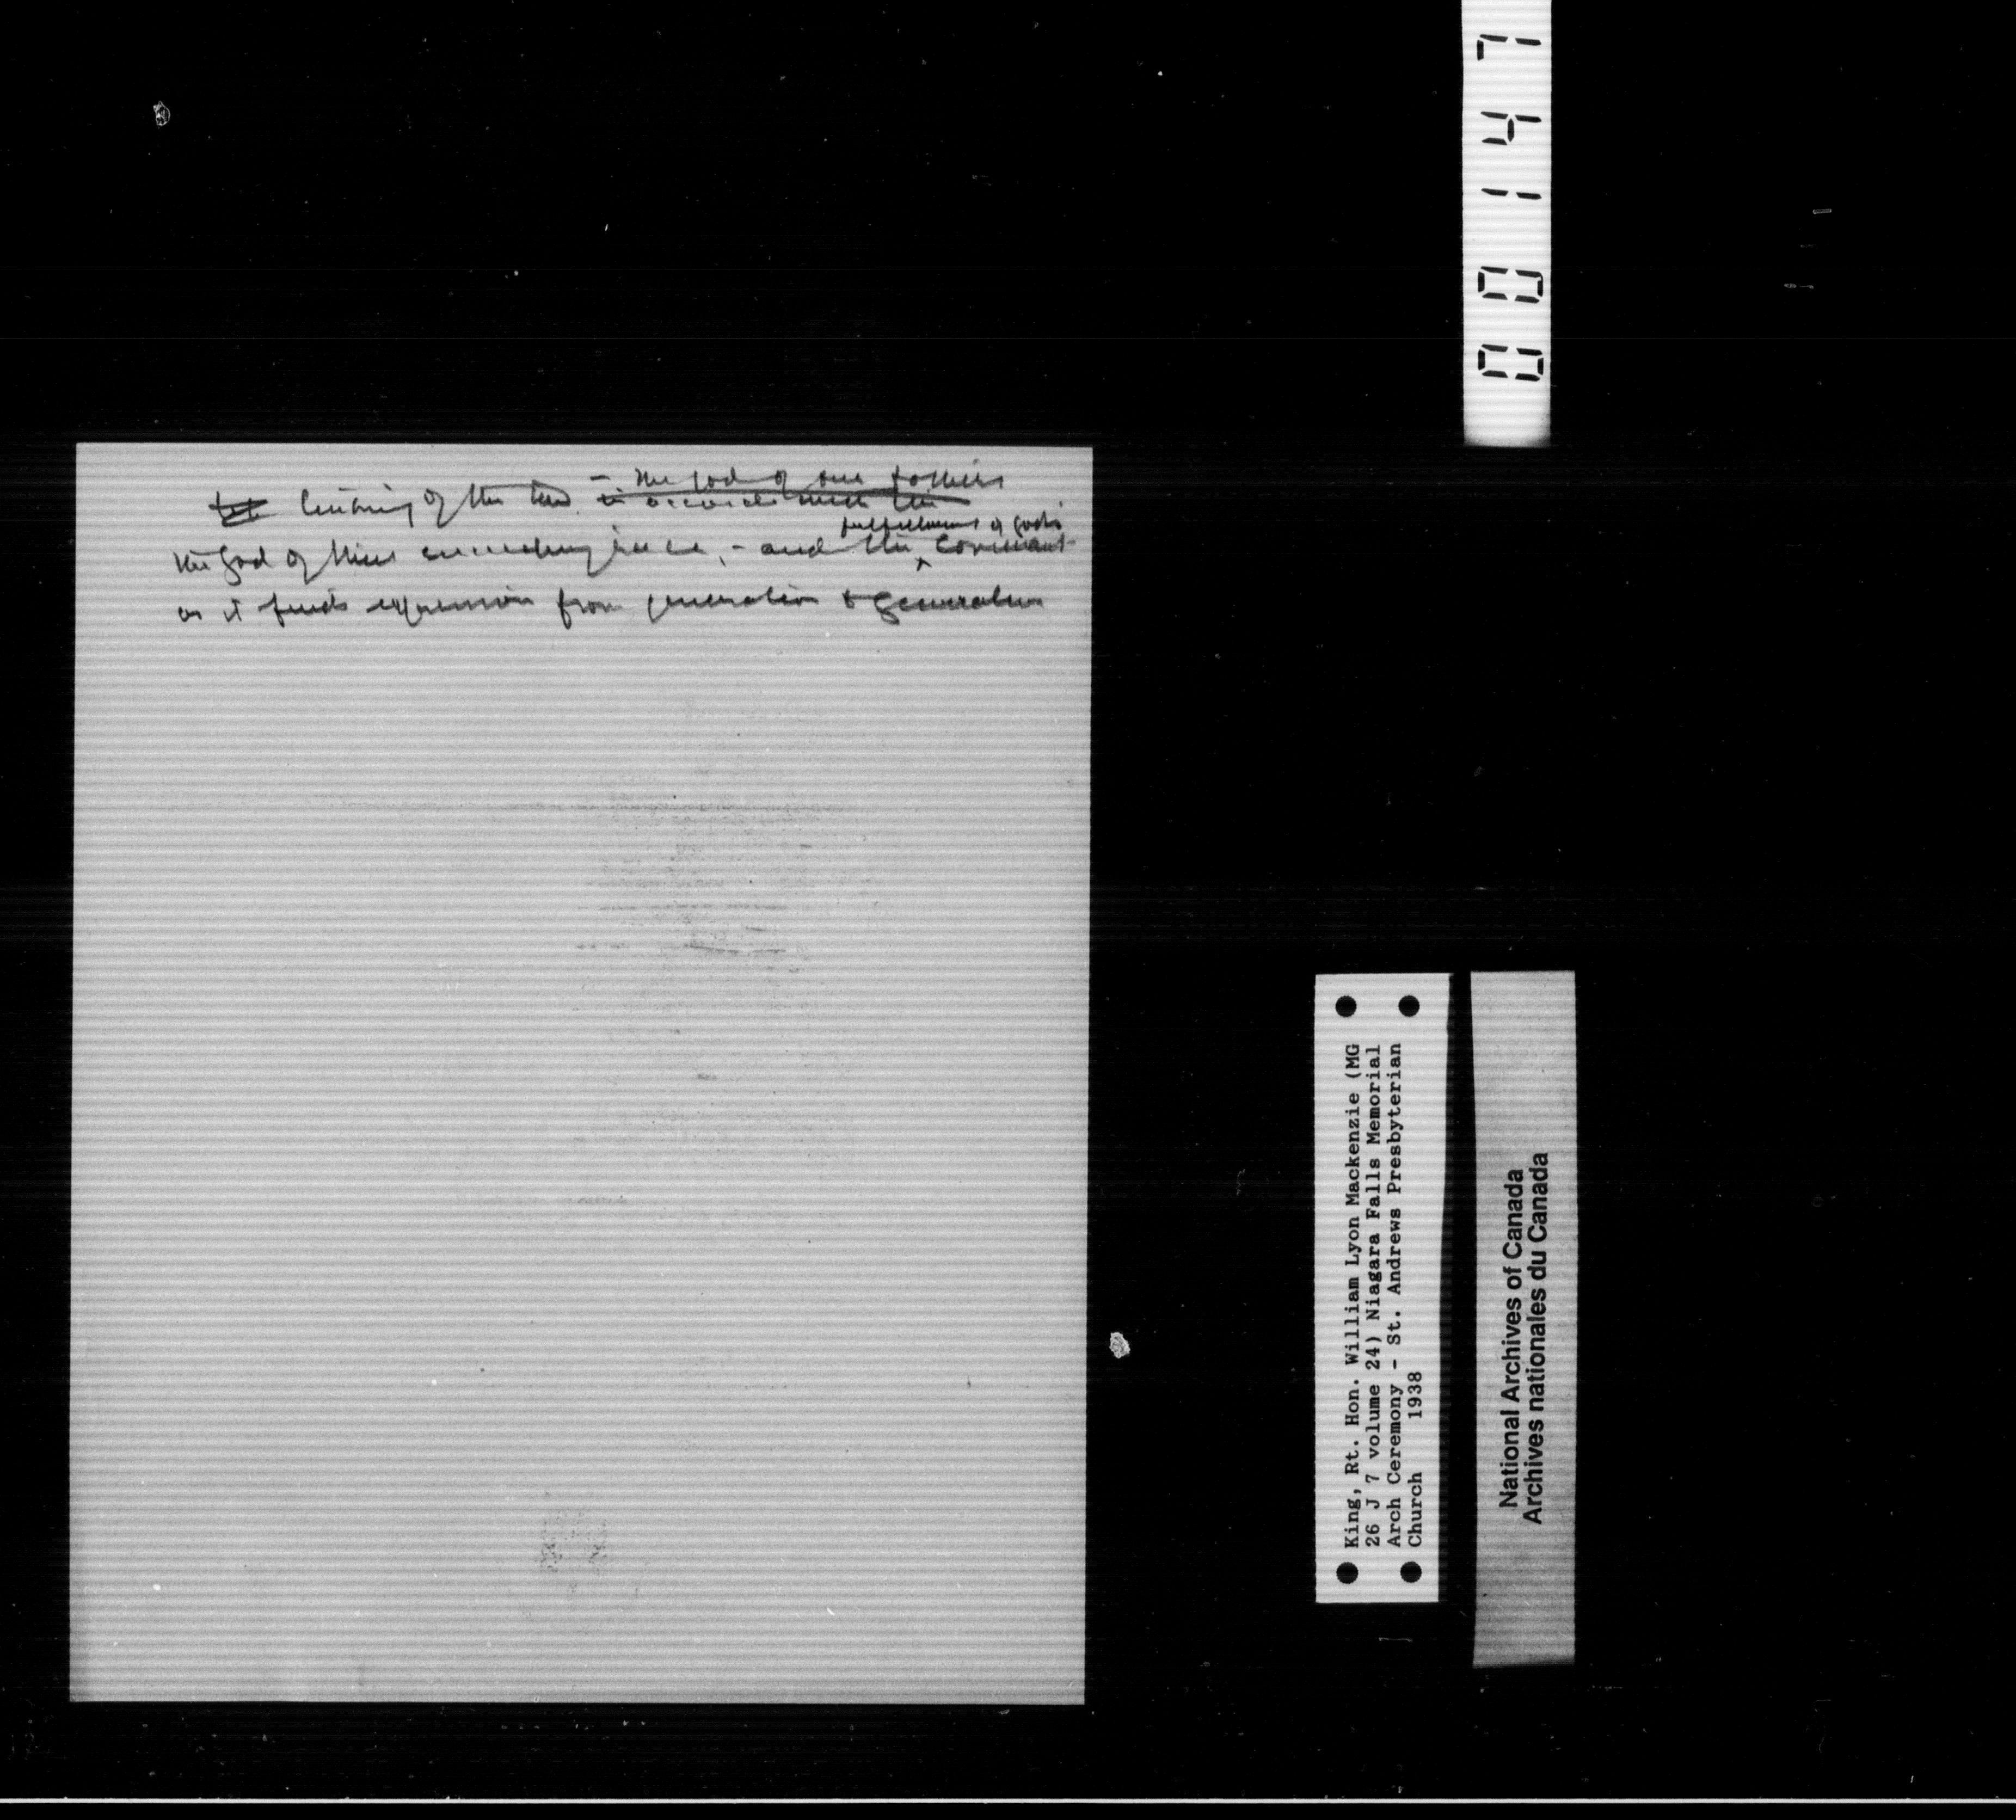 of the
– the God of our fathers
in accord with the
fulfillment of God's
the God of their succeeding race, – and the ^ covenant
as it finds expression from generation to generation
00147
King, Rt. Hon. William Lyon Mackenzie (MG
26 J 7 volume 24) Niagara Falls Memorial
Arch Ceremony - St. Andrews Presbyterian
Church 1938
National Archives of Canada
Archives nationales du Canada